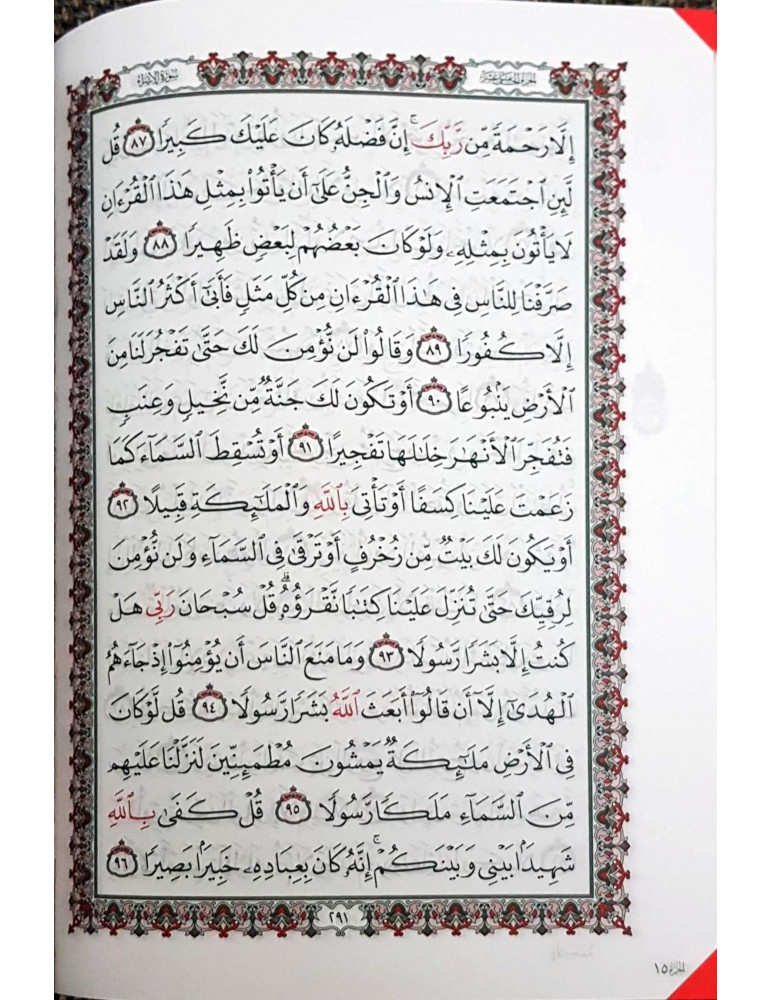 سورة الإسراء
الجزء الخامس عشر
إِلَّا رَحْمَةً مِّن رَّبِّكَ ۚ إِنَّ فَضْلَهُۥ كَانَ عَلَيْكَ كَبِيرًا ٨٧ قُل
لَّئِنِ ٱجْتَمَعَتِ ٱلْإِنسُ وَٱلْجِنُّ عَلَىٰٓ أَن يَأْتُوا۟ بِمِثْلِ هَـٰذَا ٱلْقُرْءَانِ
لَا يَأْتُونَ بِمِثْلِهِۦ وَلَوْ كَانَ بَعْضُهُمْ لِبَعْضٍ ظَهِيرًا ٨٨ وَلَقَدْ
صَرَّفْنَا لِلنَّاسِ فِى هَـٰذَا ٱلْقُرْءَانِ مِن كُلِّ مَثَلٍ فَأَبَىٰٓ أَكْثَرُ ٱلنَّاسِ
إِلَّا كُفُورًا ٨٩ وَقَالُوا۟ لَن نُّؤْمِنَ لَكَ حَتَّىٰ تَفْجُرَ لَنَا مِنَ
ٱلْأَرْضِ يَنۢبُوعًا ٩٠ أَوْ تَكُونَ لَكَ جَنَّةٌ مِّن نَّخِيلٍ وَعِنَبٍ
فَتُفَجِّرَ ٱلْأَنْهَـٰرَ خِلَـٰلَهَا تَفْجِيرًا ٩١ أَوْ تُسْقِطَ ٱلسَّمَآءَ كَمَا
زَعَمْتَ عَلَيْنَا كِسَفًا أَوْ تَأْتِىَ بِٱللَّهِ وَٱلْمَلَـٰٓئِكَةِ قَبِيلًا ٩٢
أَوْ يَكُونَ لَكَ بَيْتٌ مِّن زُخْرُفٍ أَوْ تَرْقَىٰ فِى ٱلسَّمَآءِ وَلَن نُّؤْمِنَ
لِرُقِيِّكَ حَتَّىٰ تُنَزِّلَ عَلَيْنَا كِتَـٰبًا نَّقْرَؤُهُۥ ۗ قُلْ سُبْحَانَ رَبِّى هَلْ
كُنتُ إِلَّا بَشَرًا رَّسُولًا ٩٣ وَمَا مَنَعَ ٱلنَّاسَ أَن يُؤْمِنُوٓا۟ إِذْ جَآءَهُمُ
ٱلْهُدَىٰٓ إِلَّآ أَن قَالُوٓا۟ أَبَعَثَ ٱللَّهُ بَشَرًا رَّسُولًا ٩٤ قُل لَّوْ كَانَ
فِى ٱلْأَرْضِ مَلَـٰٓئِكَةٌ يَمْشُونَ مُطْمَئِنِّينَ لَنَزَّلْنَا عَلَيْهِم
مِّنَ ٱلسَّمَآءِ مَلَكًا رَّسُولًا ٩٥ قُلْ كَفَىٰ بِٱللَّهِ
شَهِيدًۢا بَيْنِى وَبَيْنَكُمْ ۚ إِنَّهُۥ كَانَ بِعِبَادِهِۦ خَبِيرًۢا بَصِيرًا ٩٦
٢٩١
الجزء ١٥